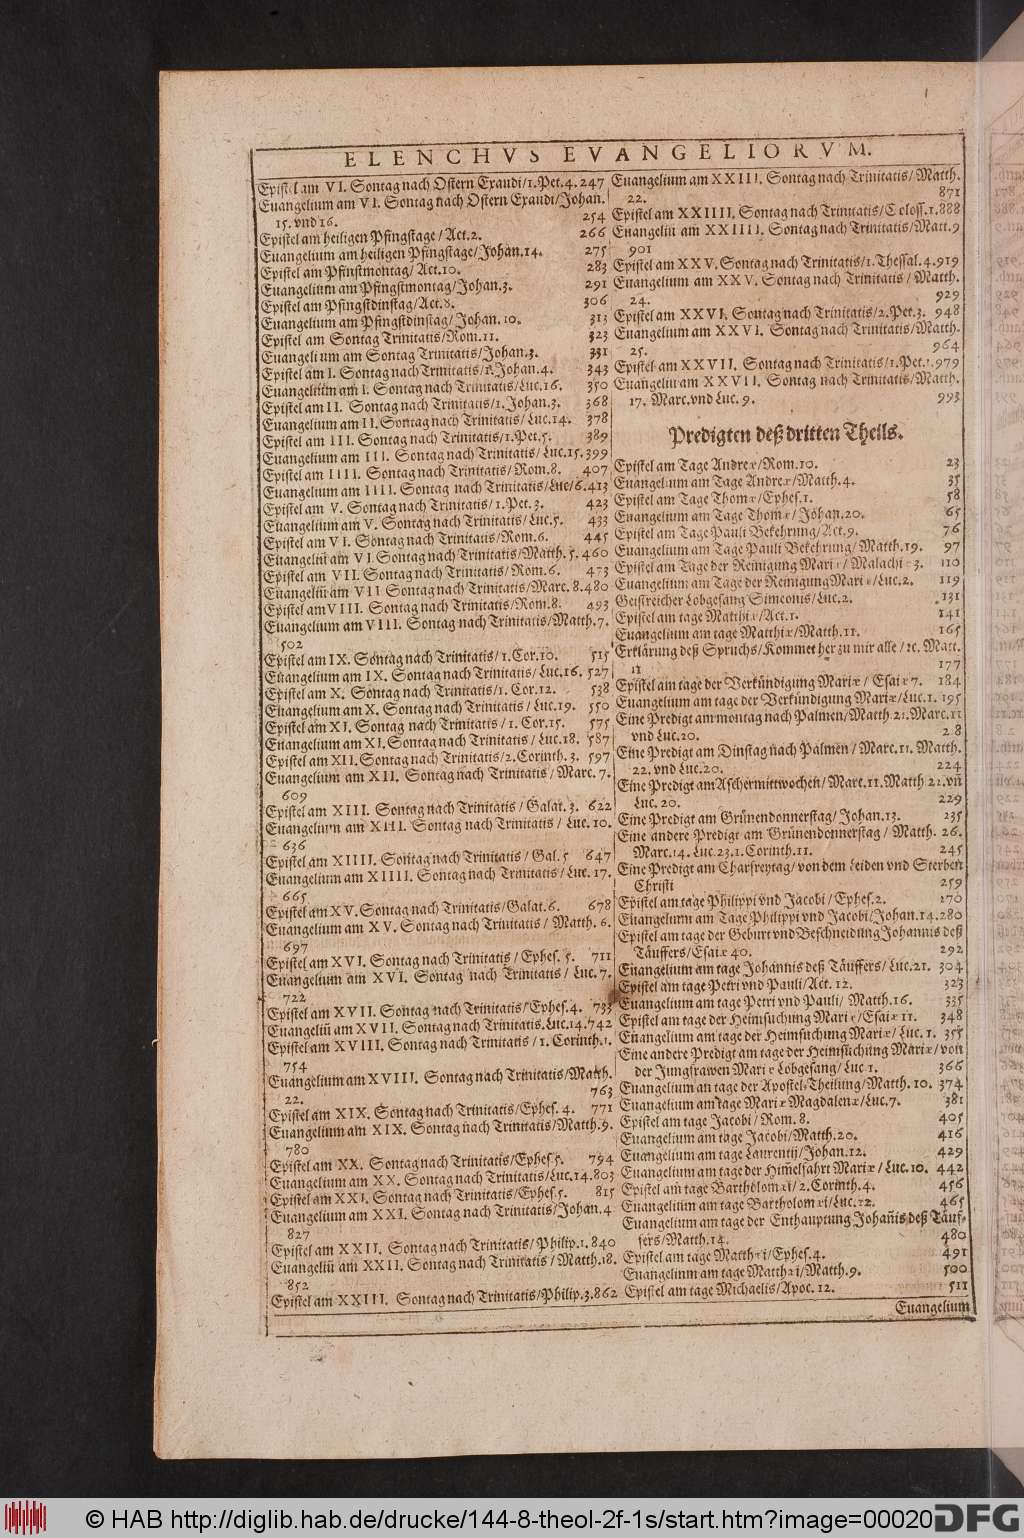 ELENCHVS EVANGELIORVM.
Epistel am VI. Sontag nach Ostern Exaudi/1.Pet.4. 247
Euangelium am VI. Sontag nach Ostern Exaudi/Johan.
15. vnd 16. 254
Epistel am heiligen Pfingstage/Act.2. 266
Euangelium am heiligen Pfingstage/Johan.14. 275
Epistel am Pfinstmontag/Act.10. 283
Euangelium am Pfingstmontag/Johan.3. 291
Epistel am Pfingstdinstag/Act.8. 306
Euangelium am Pfingstdinstag/Johan.10. 313
Epistel am Sontag Trinitatis/Rom.11. 323
Euangelium am Sontag Trinitatis/Johan.3. 331
Epistel am I. Sontag nach Trinitatis/1.Johan.4. 343
Euangeliüm am I. Sontag nach Trinitatis/Luc.16. 350
Epistel am II. Sontag nach Trinitatis/1.Johan.3. 368
Euangelium am II. Sontag nach Trinitatis/Luc.14. 378
Epistel am III. Sontag nach Trinitatis/1.Pet.5. 389
Euangelium am III. Sontag nach Trinitatis/Luc.15. 399
Epistel am IIII. Sontag nach Trinitatis/Rom.8. 407
Euangelium am IIII. Sontag nach Trinitatis/Luc/6. 413
Epistel am V. Sontag nach Trinitatis/1.Pet.3. 423
Euangelium am V. Sontag nach Trinitatis/Luc.5. 433
Epistel am VI. Sontag nach Trinitatis/Rom.6. 445
Euangeliū am VI. Sontag nach Trinitatis/Matth.5. 460
Epistel am VII. Sontag nach Trinitatis/Rom.6. 473
Euangeliū am VII Sontag nach Trinitatis/Marc.8. 480
Epistel am VIII. Sontag nach Trinitatis/Rom.8. 493
Euangelium am VIII. Sontag nach Trinitatis/Matth.7.
502
Epistel am IX. Sontag nach Trinitatis/1.Cor.10. 515
Euangelium am IX. Sontag nach Trinitatis/Luc.16. 527
Epistel am X. Sontag nach Trinitatis/1.Cor.12. 538
Euangelium am X. Sontag nach Trinitatis/Luc.19. 550
Epistel am XI. Sontag nach Trinitatis/1.Cor.15. 575
Euangelium am XI. Sontag nach Trinitatis/Luc.18. 587
Epistel am XII. Sontag nach Trinitatis/2.Corinth.3. 597
Euangelium am XII. Sontag nach Trinitatis/Marc.7.
609
Epistel am XIII. Sontag nach Trinitatis/Galat.3. 622
Euangelium am XIII. Sontag nach Trinitatis/Luc.10.
636
Epistel am XIIII. Sontag nach Trinitatis/Gal.5 647
Euangelium am XIIII. Sontag nach Trinitatis/Luc.17.
665
Epistel am XV. Sontag nach Trinitatis/Galat.6. 678
Euangelium am XV. Sontag nach Trinitatis/Matth.6.
697
Epistel am XVI. Sontag nach Trinitatis/Ephes.5. 711
Euangelium am XVI. Sontag nach Trinitatis/Luc.7.
722
Epistel am XVII. Sontag nach Trinitatis/Ephes.4. 733
Euangeliū am XVII. Sontag nach Trinitatis.Luc.14. 742
Epistel am XVIII. Sontag nach Trinitatis/1.Corinth.1.
754
Euangelium am XVIII. Sontag nach Trinitatis/Matth.
22. 763
Epistel am XIX. Sontag nach Trinitatis/Ephes.4. 771
Euangelium am XIX. Sontag nach Trinitatis/Matth.9.
780
Epistel am XX. Sontag nach Trinitatis/Ephes.5. 794
Euangelium am XX. Sontag nach Trinitatis/Luc.14. 803
Epistel am XXI. Sontag nach Trinitatis/Ephes.5. 815
Euangelium am XXI. Sontag nach Trinitatis/Johan.4
827
Epistel am XXII. Sontag nach Trinitatis/Philip.1. 840
Euangeliū am XXII. Sontag nach Trinitatis/Matth.18.
852
Epistel am XXIII. Sontag nach Trinitatis/Philip.3. 862
Euangelium am XXIII. Sontag nach Trinitatis/Matth.
22. 871
Epistel am XXIIII. Sontag nach Trinitatis/Coloss.1. 888
Euangeliū am XXIIII. Sontag nach Trinitatis/Matt.9
901
Epistel am XXV. Sontag nach Trinitatis/1.Thessal.4. 919
Euangelium am XXV. Sontag nach Trinitatis/Matth.
24. 929
Epistel am XXVI. Sontag nach Trinitatis/2.Pet.3. 948
Euangelium am XXVI. Sontag nach Trinitatis/Matth.
25. 964
Epistel am XXVII. Sontag nach Trinitatis/1.Pet.1. 979
Euangelium am XXVII. Sontag nach Trinitatis/Matth.
17. Marc. vnd Luc. 9. 993
Predigten deß dritten Theils.
Epistel am Tage Andreæ/Rom.10. 23
Euangelium am Tage Andreæ/Matth.4. 35
Epistel am Tage Thomæ/Ephes.1. 58
Euangelium am Tage Thomæ/Johan.20. 65
Epistel am Tage Pauli Bekehrung/Act.9. 76
Euangelium am Tage Pauli Bekehrung/Matth.19. 97
Epistel am Tage der Reinigung Mariæ/Malachiæ 3. 110
Euangelium am Tage der Reinigung Mariæ/Luc.2. 119
Geistreicher Lobgesang Simeonis/Luc.2. 131
Epistel am tage Matthiæ/Act.1. 141
Euangelium am tage Matthiæ/Matth.11. 165
Erklärung deß Spruchs/Kommet her zu mir alle/ꝛc. Matt.
11 177
Epistel am tage der Verkündigung Mariæ/Esaiæ 7. 184
Euangelium am tage der Verkündigung Mariæ/Luc.1. 195
Eine Predigt am montag nach Palmen/Matth.21. Marc.11
vnd Luc.20. 2 8
Eine Predigt am Dinstag nach Palmen/Marc.11. Matth.
22. vnd Luc.20. 224
Eine Predigt am Aschermittwochen/Marc.11. Matth 21. vn̄
Luc. 20. 229
Eine Predigt am Grünendonnerstag/Johan.13. 235
Eine andere Predigt am Grünendonnerstag/Matth. 26.
Marc.14. Luc.23.1. Corinth.11. 245
Eine Predigt am Charfreytag/von dem Leiden vnd Sterben
Christi 259
Epistel am tage Philippi vnd Jacobi/Ephes.2. 270
Euangelium am Tage Philippi vnd Jacobi/Johan.14. 280
Epistel am tage der Geburt vnd Beschneidung Johannis deß
Täuffers/Esaiæ 40. 292
Euangelium am tage Johannis deß Täuffers/Luc.21. 304
Epistel am tage Petri vnd Pauli/Act.12. 323
Euangelium am tage Petri vnd Pauli/Matth.16. 335
Epistel am tage der Heimsuchung Mariæ/Esaiæ 11. 348
Euangelium am tage der Heimsuchung Mariæ/Luc.1. 355
Eine andere Predigt am tage der Heimsuchung Mariæ/von
der Jungfrawen Mariæ Lobgesang/Luc 1. 366
Euangelium an tage der Apostel-Theilung/Matth.10. 374
Euangelium am tage Mariæ Magdalenæ/Luc.7. 381
Epistel am tage Jacobi/Rom.8. 405
Euangelium am tage Jacobi/Matth.20. 416
Euangelium am tage Laurentij/Johan.12. 429
Euangelium am tage der Him̄elfahrt Mariæ/Luc.10. 442
Epistel am tage Bartholomæi/2.Corinth.4. 456
Euangelium am tage Bartholomæi/Luc.12. 465
Euangelium am tage der Enthauptung Johan̄is deß Täuf-
fers/Matth.14. 480
Epistel am tage Matthæi/Ephes.4. 491
Euangelium am tage Matthæi/Matth.9. 500
Epistel am tage Michaelis/Apoc.12. 511
Euangelium
© HAB http://diglib.hab.de/drucke/144-8-theol-2f-1s/start.htm?image=00020
DFG